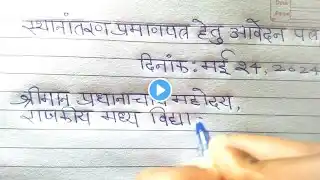 स्थानांतरण प्रमाणपत्र हेतु आवेदन पत्र
दिनांक: मई 24, 2024
श्रीमान प्रधानाचार्य महोदय,
राजकीय मध्य विद्या